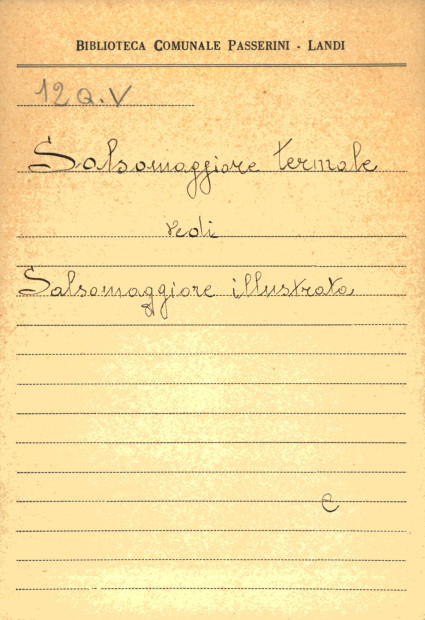 BIBLIOTECA COMUNALE PASSERINI - LANDI
12 Q.V
Salsomaggiore termale
vedi
Salsomaggiore illustrata
e